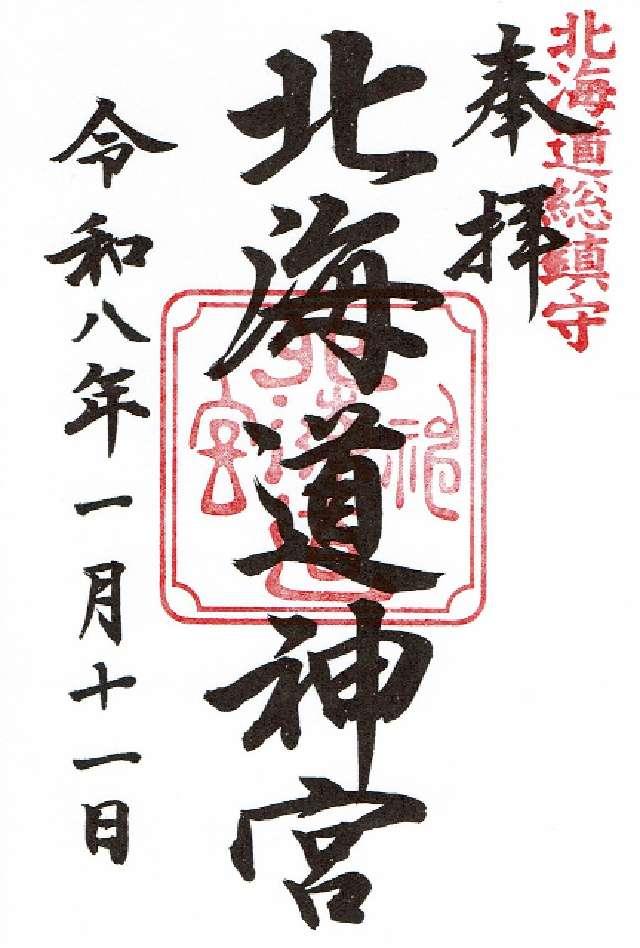 北海道総鎮守
奉拝
北海道神宮
令和八年一月十一日